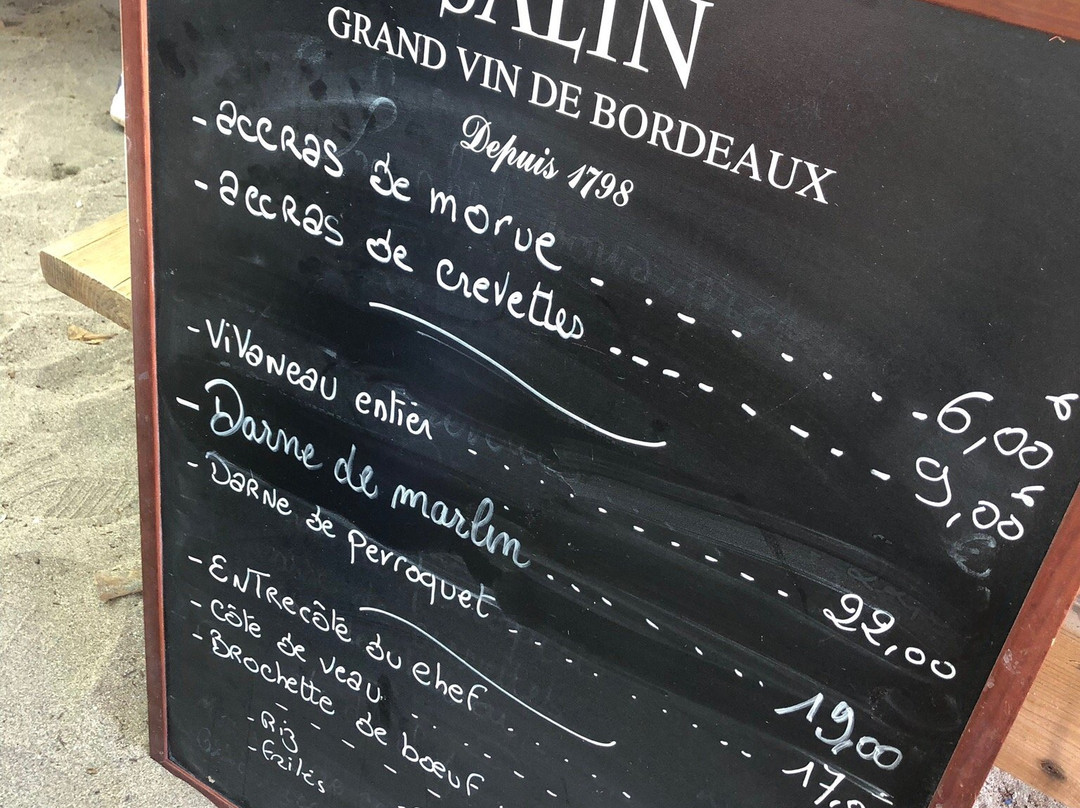 SALIN
GRAND VIN DE BORDEAUX
Depuis 1798
- accras de morue - . - - . . . . - 6,00 €
- accras de crevettes - - - - - - - - 9,00 €
- Vivaneau entier . . . . . . . . 22,00
- Darne de marlin . . . . . . . . 19,00
- Darne de perroquet . . . . . . . . 17,0
- Entrecôte du chef . . . .
- Côte de veau . . . .
- Brochette de bœuf
- Riz
- Frites